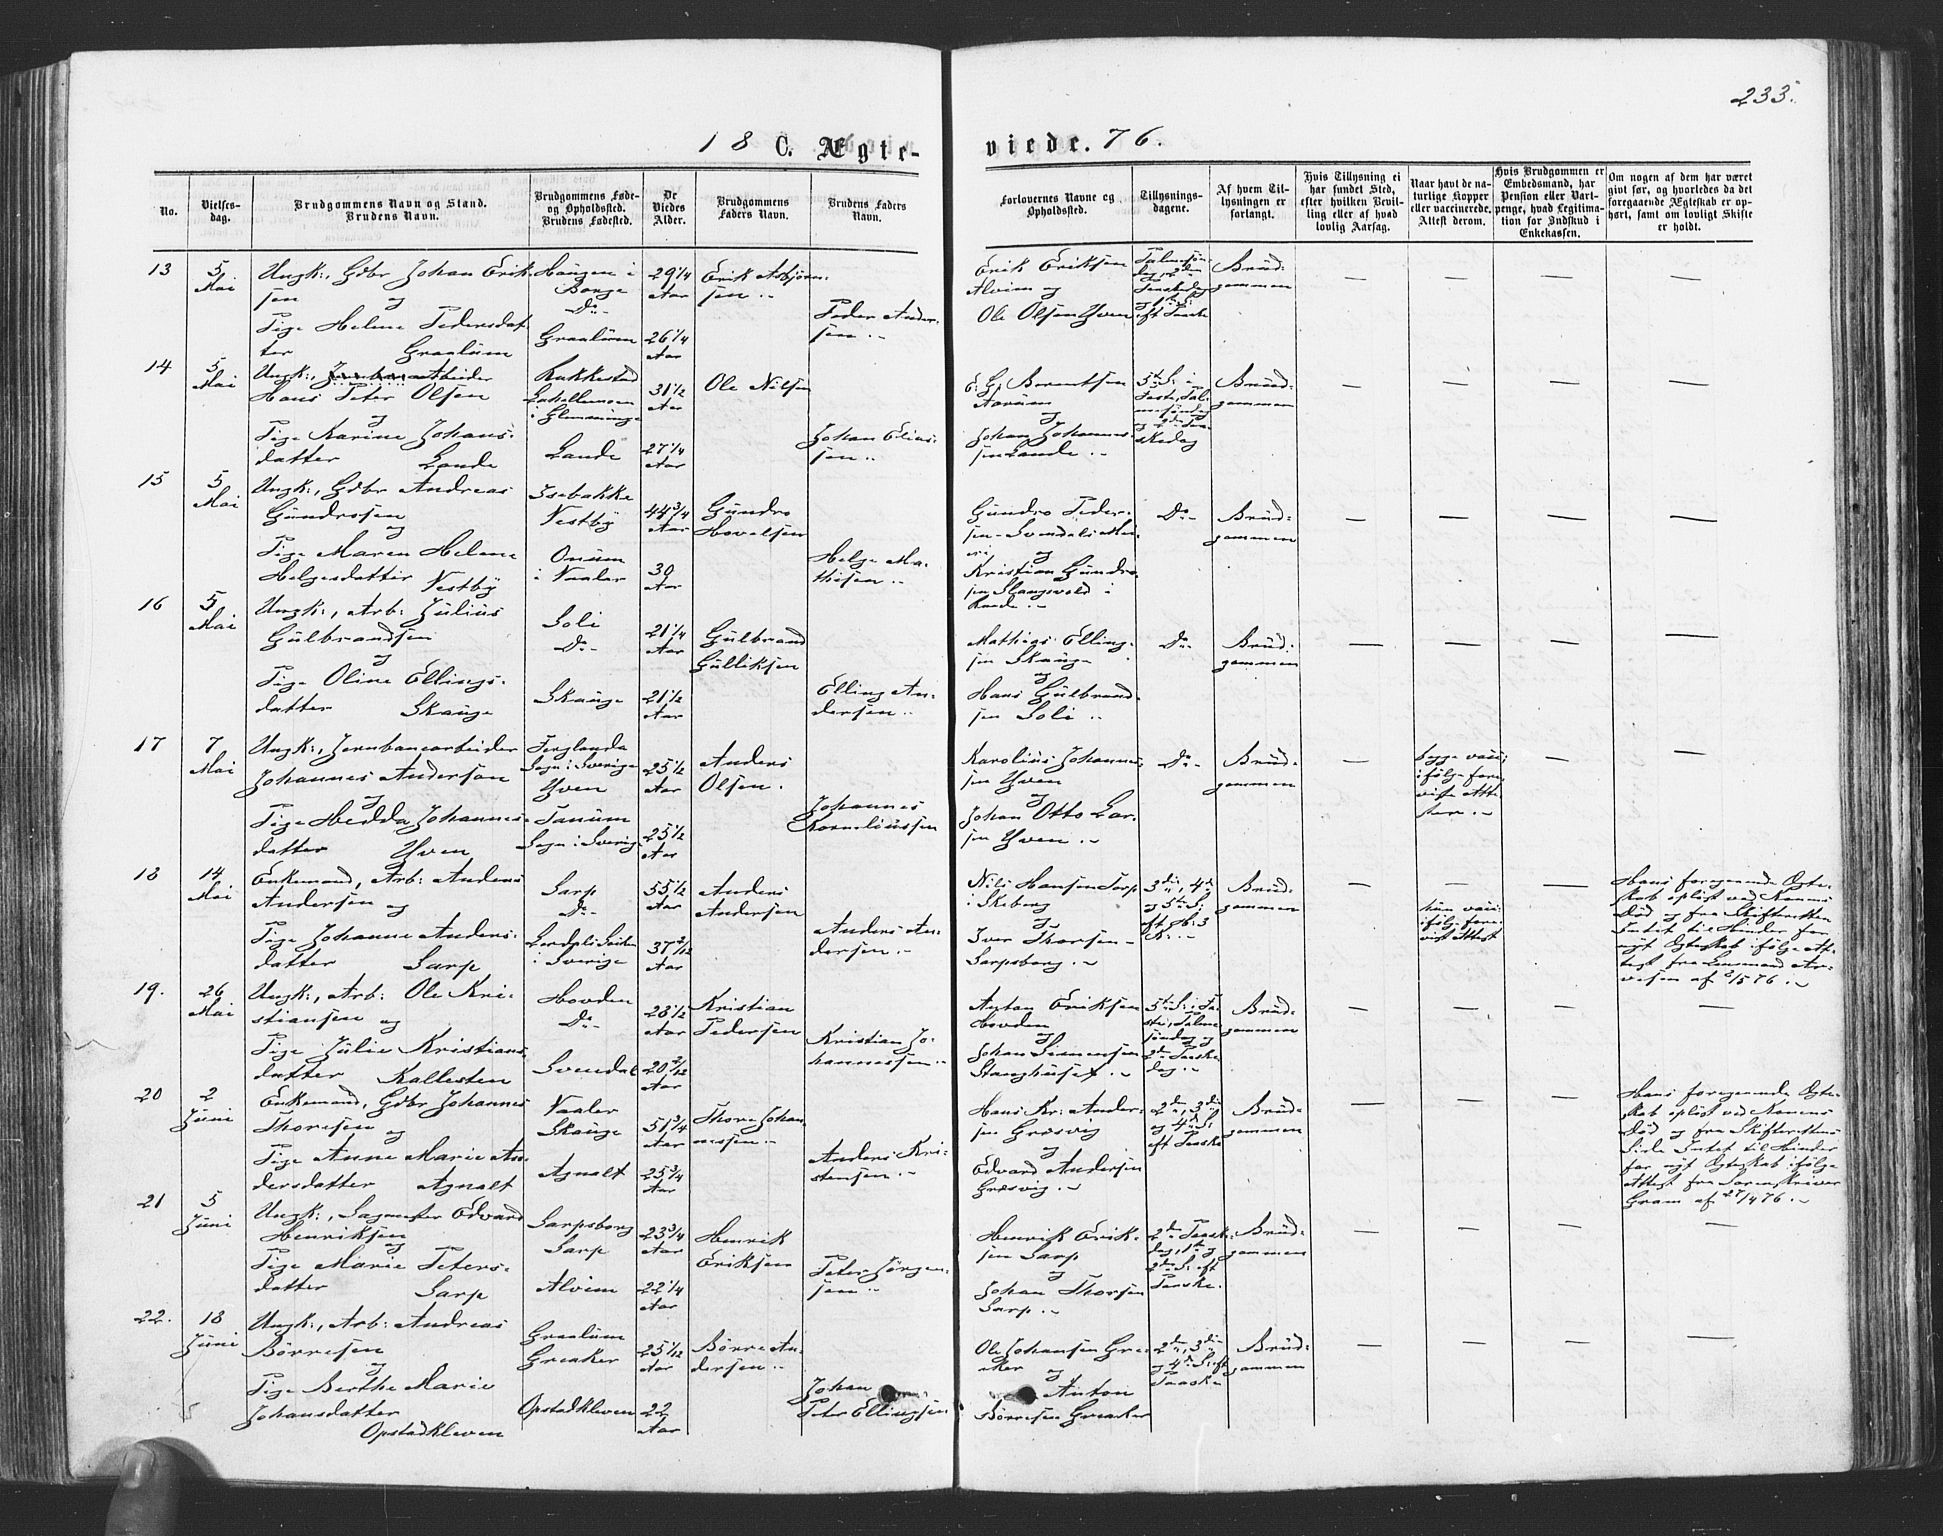 233.
18 C. Ægte-
viede. 76.
No.
Vielses-
dag.
Brudgommens Navn og Stand.
Brudens Navn.
Brudgommens Føde-
og Opholdssted.
Brudens Fødested.
De
Viedes
Alder.
Brudgommens
Faders Navn.
Brudens Faders
Navn.
Forlovernes Navne og
Opholdssted.
Tillysnings-
dagene.
Af hvem Til-
lysningen er
forlangt.
Hvis Tillysning ei
har fundet Sted,
efter hvilken Bevil-
ling eller af hvad
lovlig Aarsag.
Naar havt de na-
turlige Kopper
eller vaccinerede.
Attest derom.
Hvis Brudgommen er
Embedsmand, har
Pension eller Vart-
penge, hvad Legitima-
tion for Indskud i
Enkekassen.
Om nogen af dem har været
givt før, og hvorledes da det
foregaaende Ægteskab er op-
hørt, samt om lovligt Skifte
er holdt.
13
5
Mai
Ungk:, Gdbr Johan Erik-
sen
og
Pige Helene Pedersdat-
ter Graalüm
Haugen i
Borge
Do
Graalüm
29 1/4
Aar
26 1/4
Aar
Erik Asbjørn-
sen
Peder Ander-
sen
Erik Eriksen
Alvim og
Ole Olsen Yven
Palmesøn-
dag, 2den
Paaskedag
og 1ste S:
eft Paaske
Brüd-
gommen
— — — —
14
5
Mai
Ungk:, Jernbanearbeider
Hans Peter Olsen
og
Pige Karine Johans-
datter Lande
Rakkestad
i Glemminge
Lande
31 1/2
Aar
27 1/4
Aar
Ole Nilsen
Johan Elias-
sen
E: G: Berentsen
og
Johan Johannes-
sen Lande
5te S: i
Faste, Pal-
mesøndag
og 2den Paa-
skedag
Brüd-
gommen
— — — —
15
5
Mai
Ungk:, Gdbr Andreas
Gündersen
og
Pige Maren Helene
Helgesdatter Vestby
Isebakke
Vestby
Onüm
i Vaaler
44 3/4
Aar
30
Aar
Gündro
Hovelsen
Helge Ma-
thisen
Gündro Peder-
sen
og
Kristian Gündro-
sen Slangsvold i
Raade
Do
Brüd-
gommen
— — — —
16
5
Mai
Ungk:, Arb: Jülius
Gülbrandsen
og
Pige Oline Ellings-
datter Skauge
Soli
Do
Skauge
21 1/4
Aar
21 1/2
Aar
Gülbrand
Gülliksen
Elling An-
dersen
Mathias Elling-
sen Skauge
og
Hans Gülbrand-
sen Soli
Do
Brüd-
gommen
— — — —
17
7
Mai
Ungk:, Jernbanearbeider
Johannes Anderson
og
Pige Hedda Johannes-
datter Yven
Ferglanda
Sogn i Sverige
Yven
Tanüm
Sogn i Sverige
25 1/2
Aar
25 1/2
Aar
Anders
Olsen
Johannes
Korneliussen
Karolius Johannes-
sen Yven
og
Johan Otto Lar-
sen Yven
Do
Brüd-
gommen
—
begge vacc:
ifølge fore-
viste Atte-
ster
— —
18
14
Mai
Enkemand, Arb: Anders
Andersen og
Pige Johanne Anders-
datter Sarp
Sarp
Do
i Sverige
55 1/2
Aar
37 2/12
Aar
Anders
Andersen
Anders An-
dersen
Nils Hansen Torp
i Skeberg
og
Iver Thorsen
Sarpsborg
3die, 4de
og 5te S:
eft H: 3
K:
Brüd-
gommen
— —
hün vacc:
ifølge fore-
vist Attest
—
Hans foregaaende Ægte-
skab opløst ved Konens
Død og fra Skifteretten
Intet til Hinder for
nyt Ægteskab ifølge At-
test fra Lensmand Ar-
vesen af 2/5 76.
19.
26
Mai
Ungk:, Arb: Ole Kri-
stiansen og
Pige Jülie Kristians-
datter Kallesten
Hovden
Do
Svendal
28 1/2
Aar
20 2/12
Aar
Kristian
Pedersen
Kristian Jo-
hannessen
Anton Eriksen
Hovden
og
Johan Simensen
Stanghuset
5te S: i Fa-
ste, Palme-
søndag og
2den Paaske-
dag.
Brüd-
gommen
— — — —
20
2
Jüni
Enkemand, Gdbr Johannes
Thoresen og
Pige Anne Marie An-
dersdatter Agnalt
Vaaler
Skauge
Agnalt
51 3/4
Aar
25 3/4
Aar
Thore Johan-
nessen
Anders Kri-
stensen
Hans Kr: Ander-
sen Græsvig
og
Edvard Andersen
Græsvig
2den, 3die
og 4de S:
eft Paaske
Brüd-
gommen
— — —
Hans foregaaende Ægte-
skab opløst ved Konens
Død og fra Skifterettens
Side Intet til Hinder
for nyt Ægteskab ifølge
Attest fra Sorenskriver
Gram af 27/4 76.
21
5
Jüni
Ungk:, Sagmester Edvard
Henriksen
og
Pige Marie Peters-
datter Sarp
Sarpsborg
Sarp
Alvim
23 3/4
Aar
22 1/4
Aar
Henrik
Eriksen
Peter Jørgen-
sen
Henrik Erik-
sen Sarp
og
Johan Thorsen
Sarp
2den Paaske-
dag, 1ste og
2den S: eft
Paaske.
Brüd-
gommen
— — — —
22.
18
Jüni
Ungk:, Arb: Andreas
Börresen
og
Pige Berthe Marie
Johansdatter
Opstadkleven
Graalüm
Greaker
Opstadkleven
25 1/12
Aar
22
Aar
Börre An-
dersen
Johan
Peter Ellingsen
Ole Johansen Gre-
aker
og
Anton
Börresen Greaker
2den, 3die
og 4de S: eft
Paaske
Brüd-
gommen
— — — —